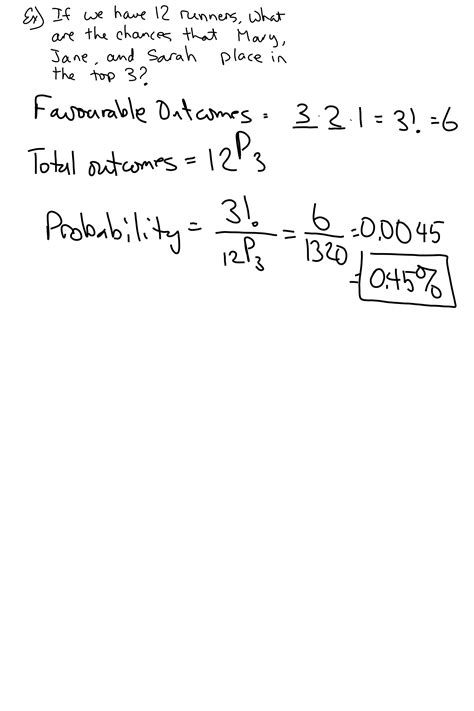 Ex) If we have 12 runners, what
are the chances that Mary,
Jane, and Sarah place in
the top 3?
Favourable Outcomes = 3·2·1 = 3! = 6
Total outcomes = 12P3
Probability = 3!/12P3 = 6/1320 = 0.0045
= 0.45%